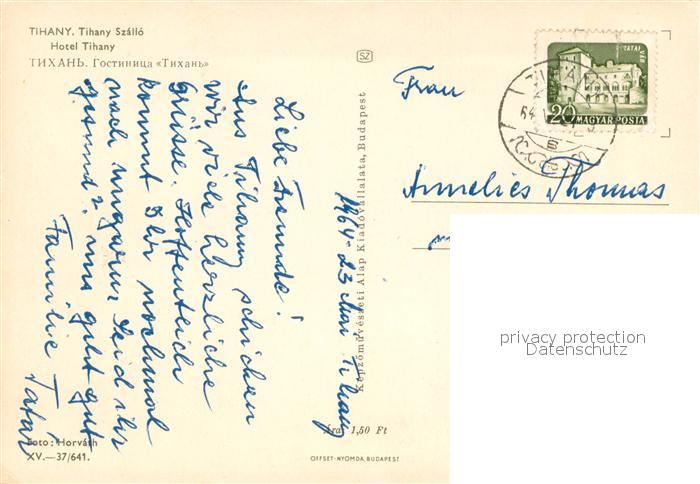 TIHANY. Tihany Szálló
Hotel Tihany
ТИХАНЬ. Гостиница «Тихань»
SZ
Liebe Freunde!
Aus Tihany schicken
wir viele herzliche
Grüsse. Hoffentlich
kommt Ihr nochmal
nach Ungarn. Seid ihr
gesund? uns geht gut
Familie Tatár
1964. 23 Mai Tihany
Képzőművészeti Alap Kiadóvállalata, Budapest
Frau
Annelies Thomas
TATAI VÁR
20 MAGYAR POSTA
TIHANY
64
privacy protection
Datenschutz
Foto: Horváth
XV.—37/641.
Ára: 1,50 Ft
OFFSET-NYOMDA, BUDAPEST